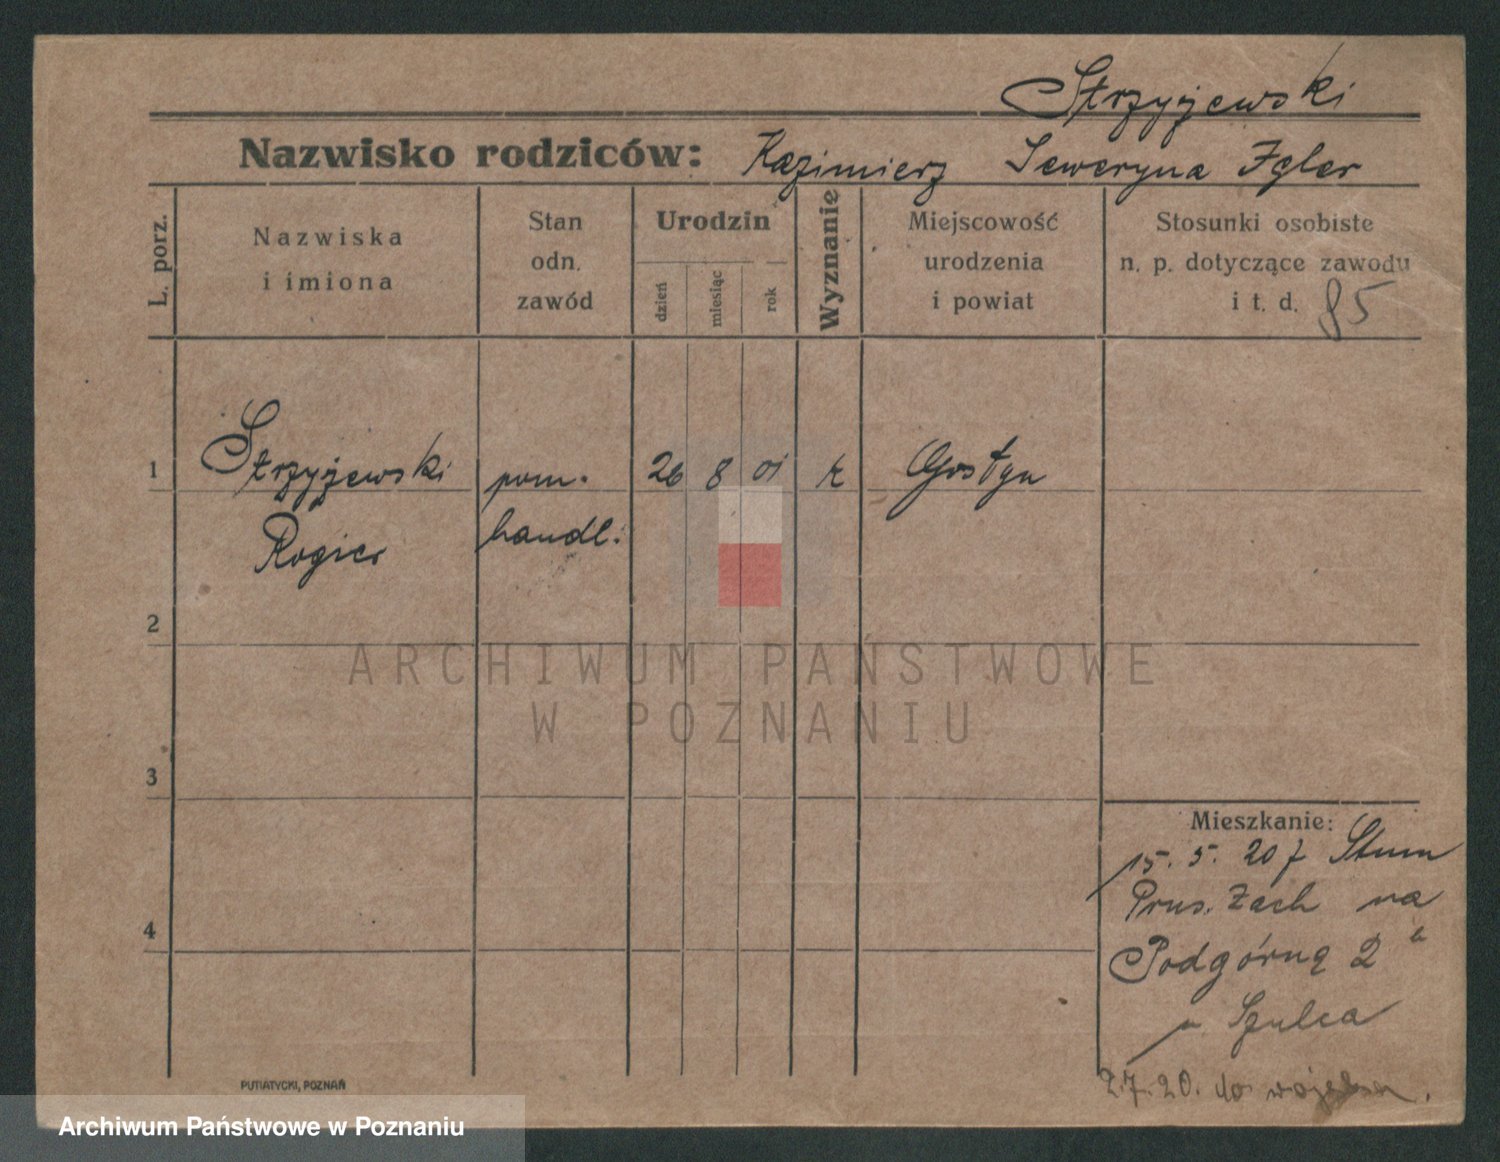 Strzyżewski
Nazwisko rodziców: Kazimierz Seweryna Igler
L. porz.
Nazwiska
i imiona
Stan
odn.
zawód
Urodzin
dzień
miesiąc
rok
Wyznanie
Miejscowość
urodzenia
i powiat
Stosunki osobiste
n. p. dotyczące zawodu
i t. d. 85
1 Strzyżewski pom. 26 8 01 k Gostyn
Rogier handl.
2
3
4
Mieszkanie:
15. 5. 20 z Stum
Prus. Zach na
Podgórną 2
u Szulca
2.7.20. do wojska.
PUTIATYCKI, POZNAŃ
ARCHIWUM PAŃSTWOWE
W POZNANIU
Archiwum Państwowe w Poznaniu